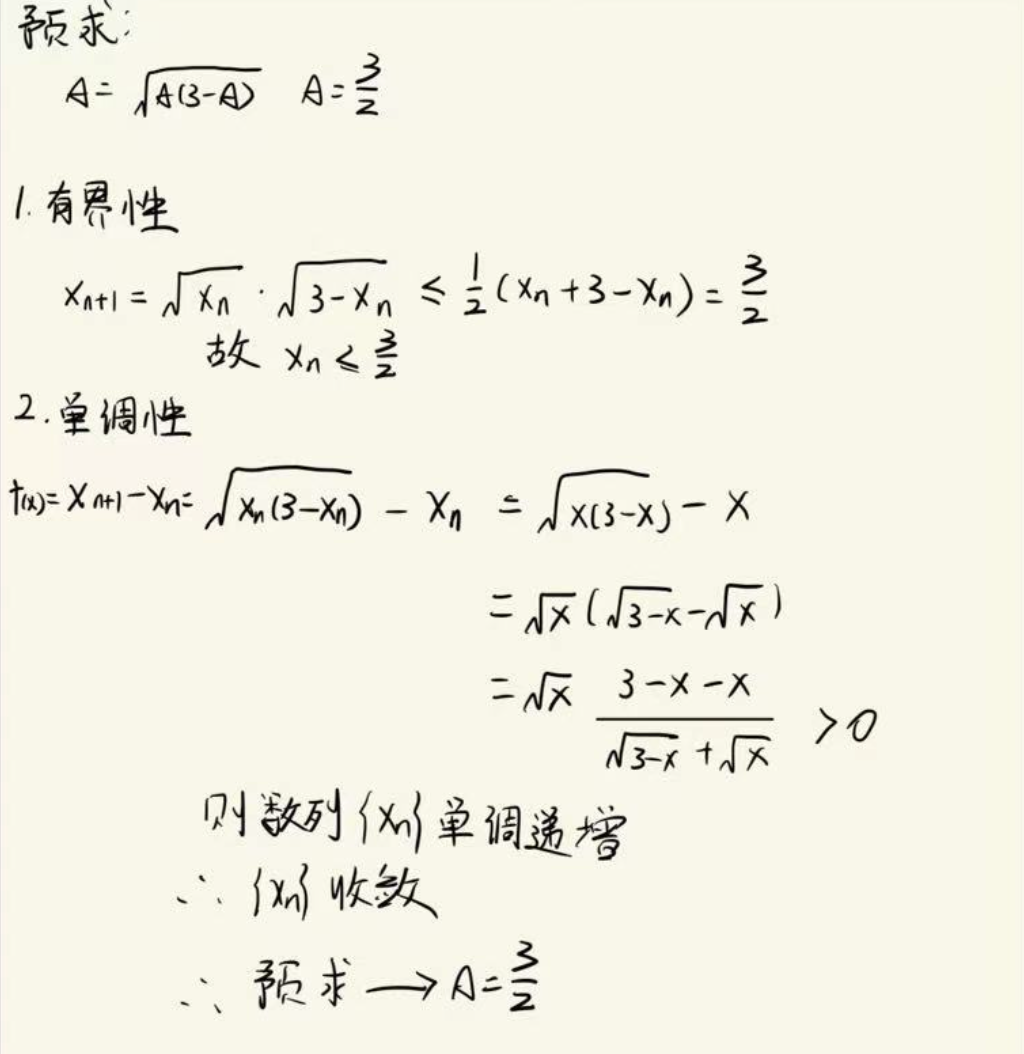 预求:
A = √(A(3-A)) A = 3/2
1. 有界性
x_{n+1} = √x_n · √(3-x_n) ≤ 1/2 (x_n + 3 - x_n) = 3/2
故 x_n ≤ 3/2
2. 单调性
f(x) = x_{n+1} - x_n = √(x_n(3-x_n)) - x_n = √(x(3-x)) - x
= √x (√(3-x) - √x)
= √x (3-x-x)/(√(3-x) + √x) > 0
则数列{x_n}单调递增
∴ {x_n} 收敛
∴ 预求 → A = 3/2